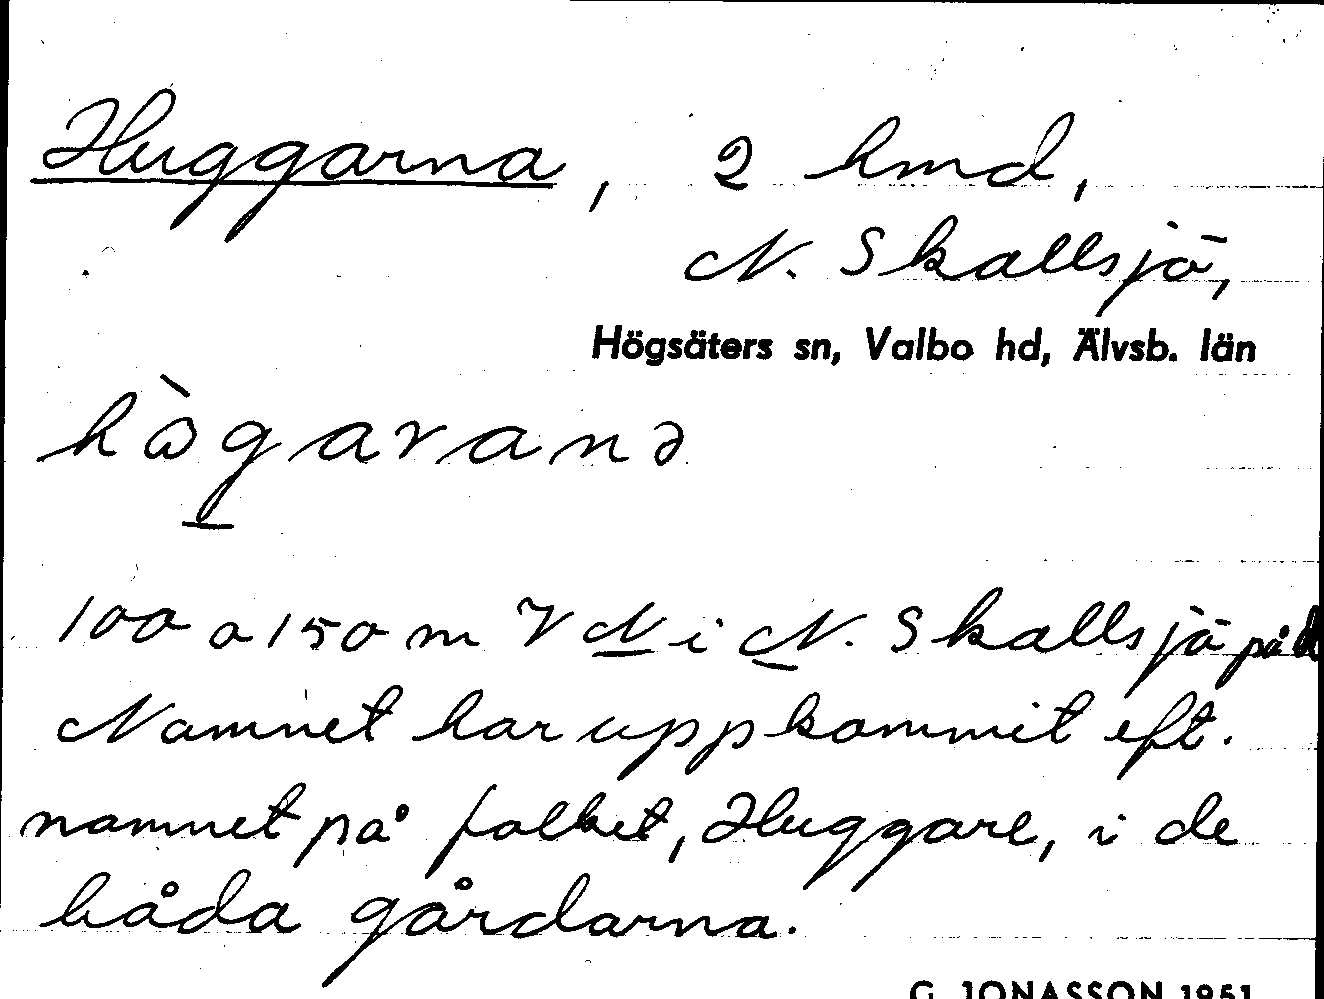 Huggarna, 2 hmd,
N. Skallsjö,
Högsäters sn, Valbo hd, Älvsb. län
100 a 150 m V N i N. Skallsjö på
Namnet har uppkommit eft.
namnet på folket, Huggare, i de
båda gårdarna.
G. JONASSON 1951